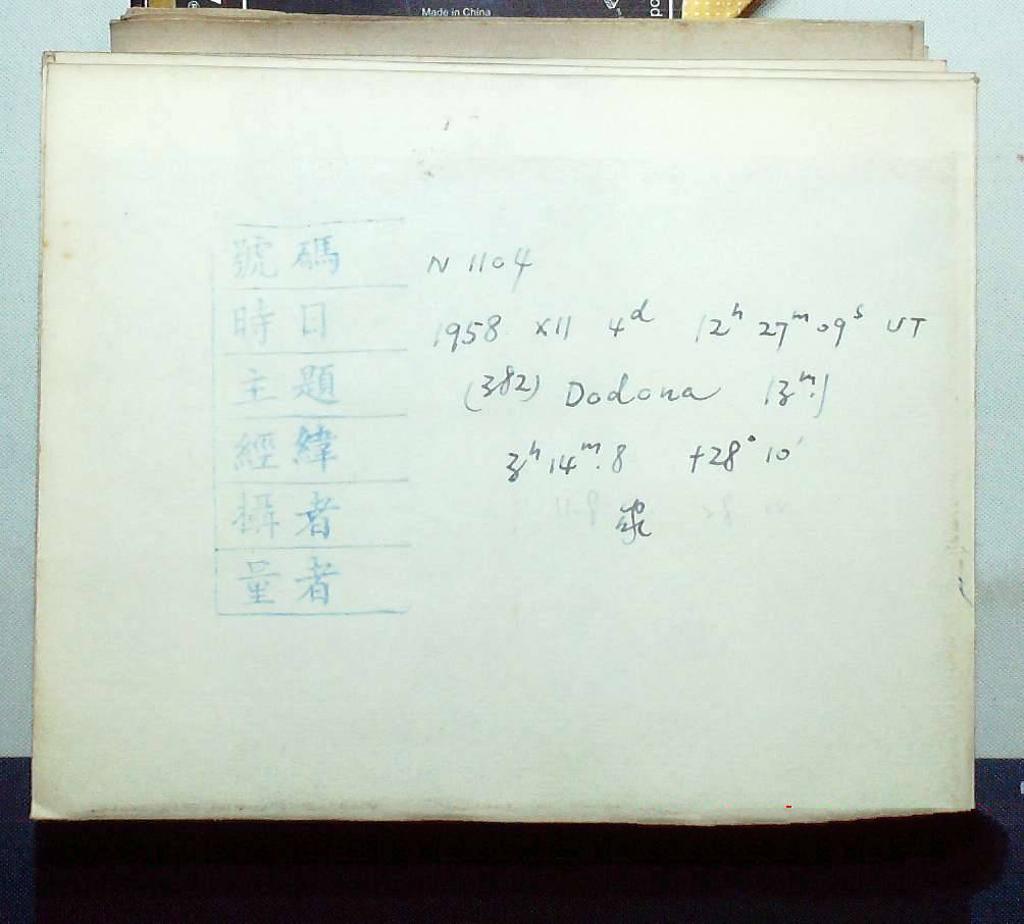 Made in China
號碼 N 1104
時日 1958 XII 4ᵈ 12ʰ 27ᵐ 09ˢ UT
主題 (382) Dodona 13ᵐ.1
經緯 3ʰ 14ᵐ.8 +28° 10′
攝者
量者